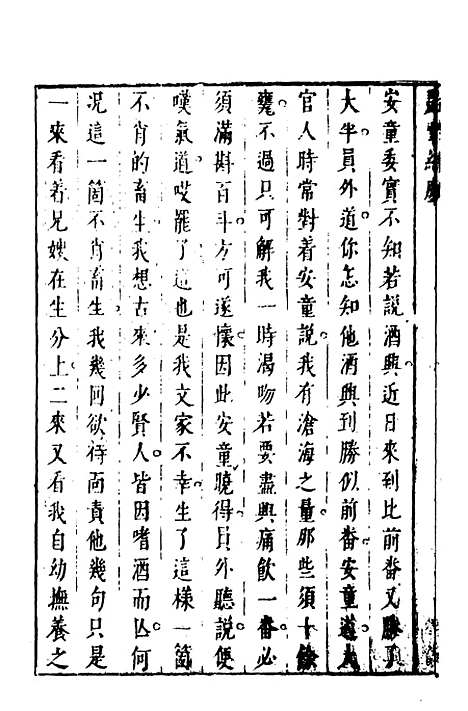 安童委實不知若說酒興近日來到比前番又勝了
大半員外道你怎知他酒興到勝似前番安童道大
官人時常對着安童說我有滄海之量那些須十餘
甕不過只可解我一時渴吻若要盡興痛飲一番必
須滿斟百斗方可遂懷因此安童曉得員外聽說便
嘆氣道哎罷了這也是我文家不幸生了這樣一箇
不肖的畜生我想古來多少賢人皆因嗜酒而亾何
况這一箇不肖畜生我幾回欲待面責他幾句只是
一來看着兄嫂在生分上二來又看我自幼撫養之